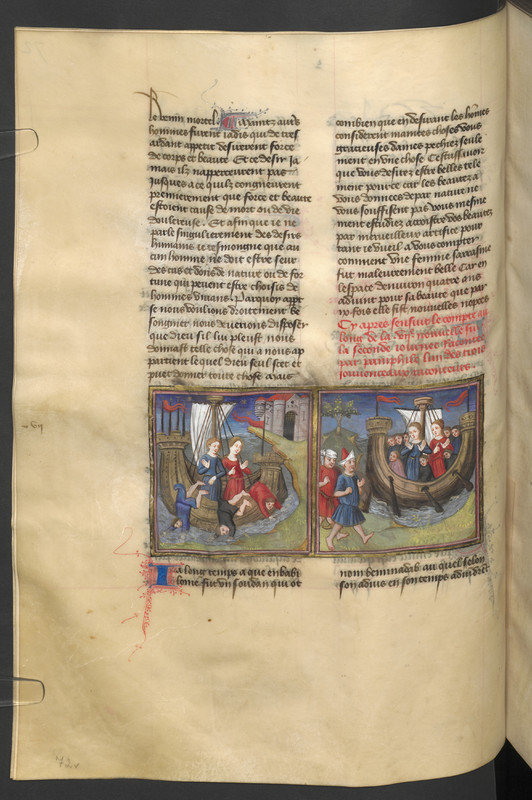 le venin mortel. Et avant
hommes furent jadis qui de tres
ardant appetit desirerent force
de corps et beaute. Et ce desir ja
mais ilz n'appercevrent pas
jusques a ce quilz congneurent
premierement que force et beaute
estoient cause de mort ou de vie
douleureuse. Et afin que je ne
parle singulierement des desirs
humains je tesmongne que au
cun homme ne doit estre seur
des cas et dons de nature ou de for
tune qui peuent estre choisis de
hommes vivans. Parquoy appt
se nous voulions droitement be
songnier nous devrions disposer
que dieu sil lui plaist nous
donnast telle chose qui a nous ap
partient lequel dieu seul scet et
puet donner toute chose mais
combien que en desirant les homes
considerent maintes choses vous
gracieuses dames pechiez seule
ment en une chose. Cest assavoir
que vous desirez estre belles tele
ment pource car les beautez a
vous donnees par nature ne
vous souffisent pas vous mesme
ment estudiez accroistre voz beautez
par merveilleux artifice pour
tant je vueil a vous compter
comment une femme sarrasine
fut maleureusement belle car en
lespace denviron quatre ans
advint pour sa beaute que par
ix. fois elle fist nouvelles nopces
Cy apres sensuit le compte au
long de la viie nouvelle sur
la seconde journee racontee
par pamphile lun des trois
jouvenceaux raconteurs.
vii
Ja long temps a que en babi
lonne fut un soudan qui ot
nom beminadab auquel selon
son advis en son temps advindrent